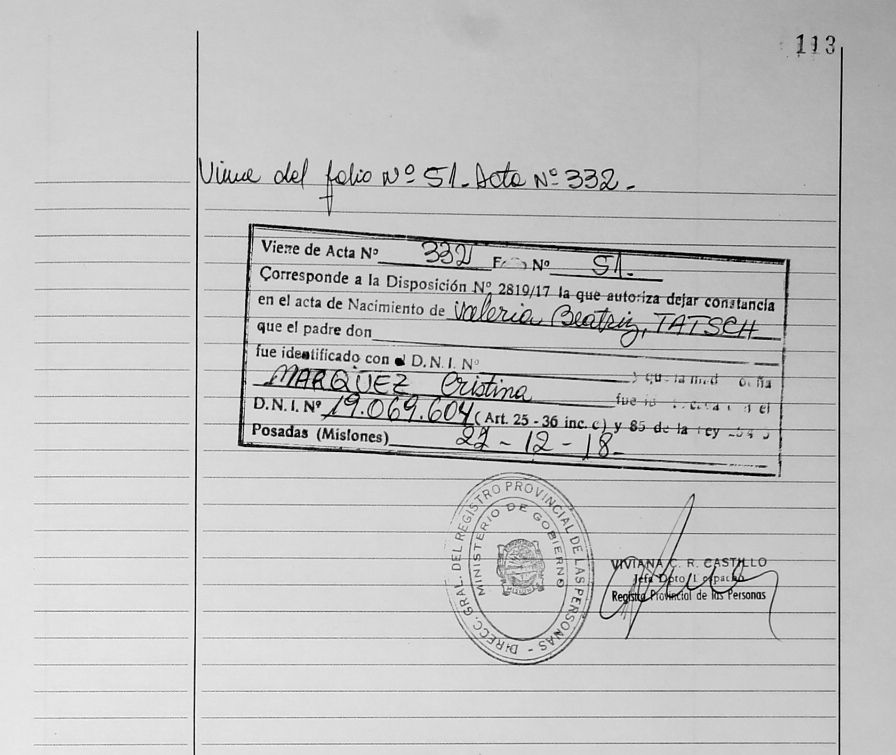 113
Viene del folio Nº 51. Acta Nº 332.
Viene de Acta Nº 332 Nº 51.
Corresponde a la Disposición Nº 2819/17 la que autoriza dejar constancia
en el acta de Nacimiento de Valeria Beatriz, TATSCH
que el padre don
fue identificado con el D.N.I. Nº
MARQUEZ Cristina fue el
D.N.I. Nº 19.069.604 (Art. 25 - 36 inc. c) y 85 de la
Posadas (Misiones) 22 - 12 - 18.
DIRECC. GRAL. DEL REGISTRO PROVINCIAL DE LAS PERSONAS -
MINISTERIO DE GOBIERNO
VIVIANA C. R. CASTILLO
Jefa Dpto
Registro Provincial de las Personas